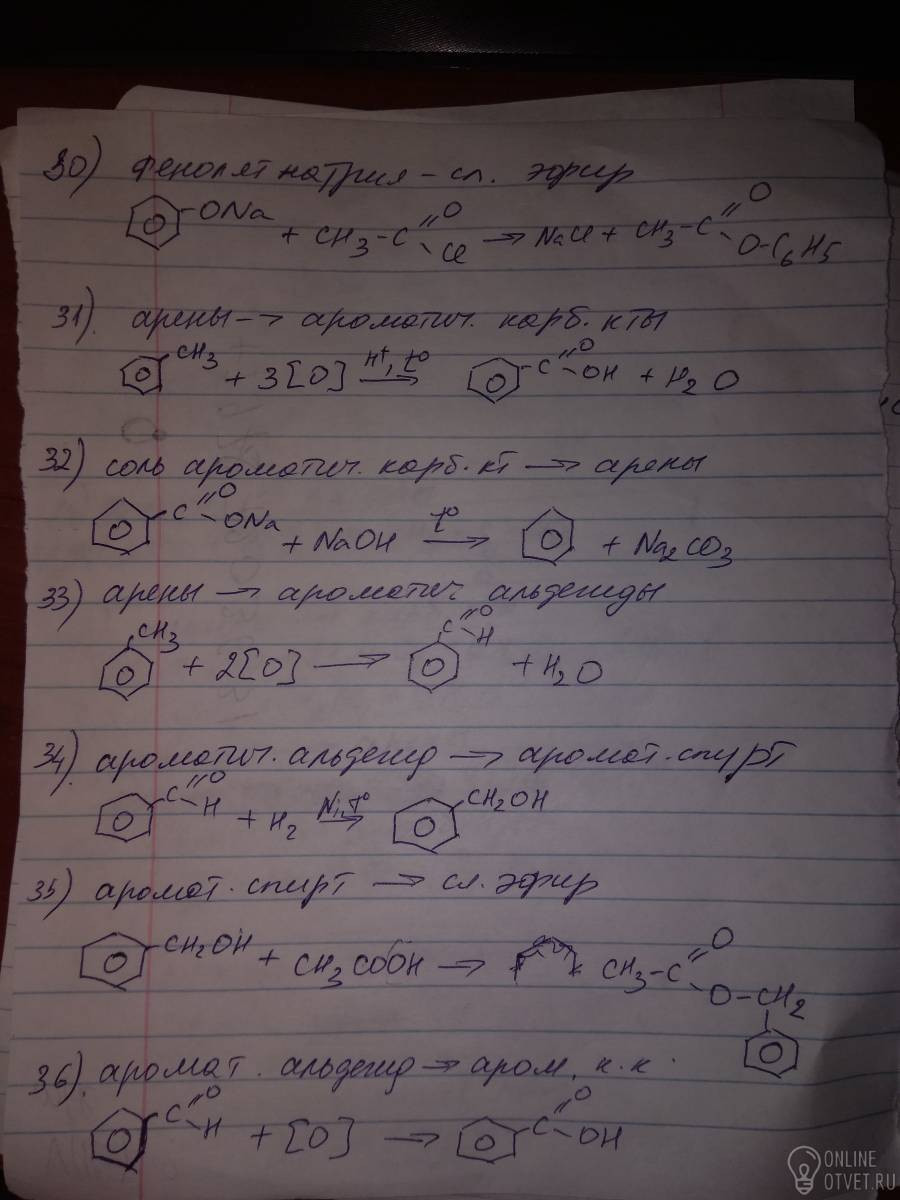 30) фенолят натрия – сл. эфир
ONa + CH3–C=O Cl → NaCl + CH3–C=O O–C6H5
31). арены → ароматич. карб. к-ты
CH3 + 3[O] H+, t° → C=O OH + H2O
32) соль ароматич. карб. к-т → арены
C=O ONa + NaOH t° → + Na2CO3
33) арены → ароматич альдегиды
CH3 + 2[O] → C=O H + H2O
34). ароматич. альдегид → аромат. спирт
C=O H + H2 Ni, t° → CH2OH
35) аромат. спирт → сл. эфир
CH2OH + CH3COOH → CH3–C=O O–CH2
36). аромат. альдегид → аром. к.к.
C=O H + [O] → C=O OH
ONLINE
OTVET.RU